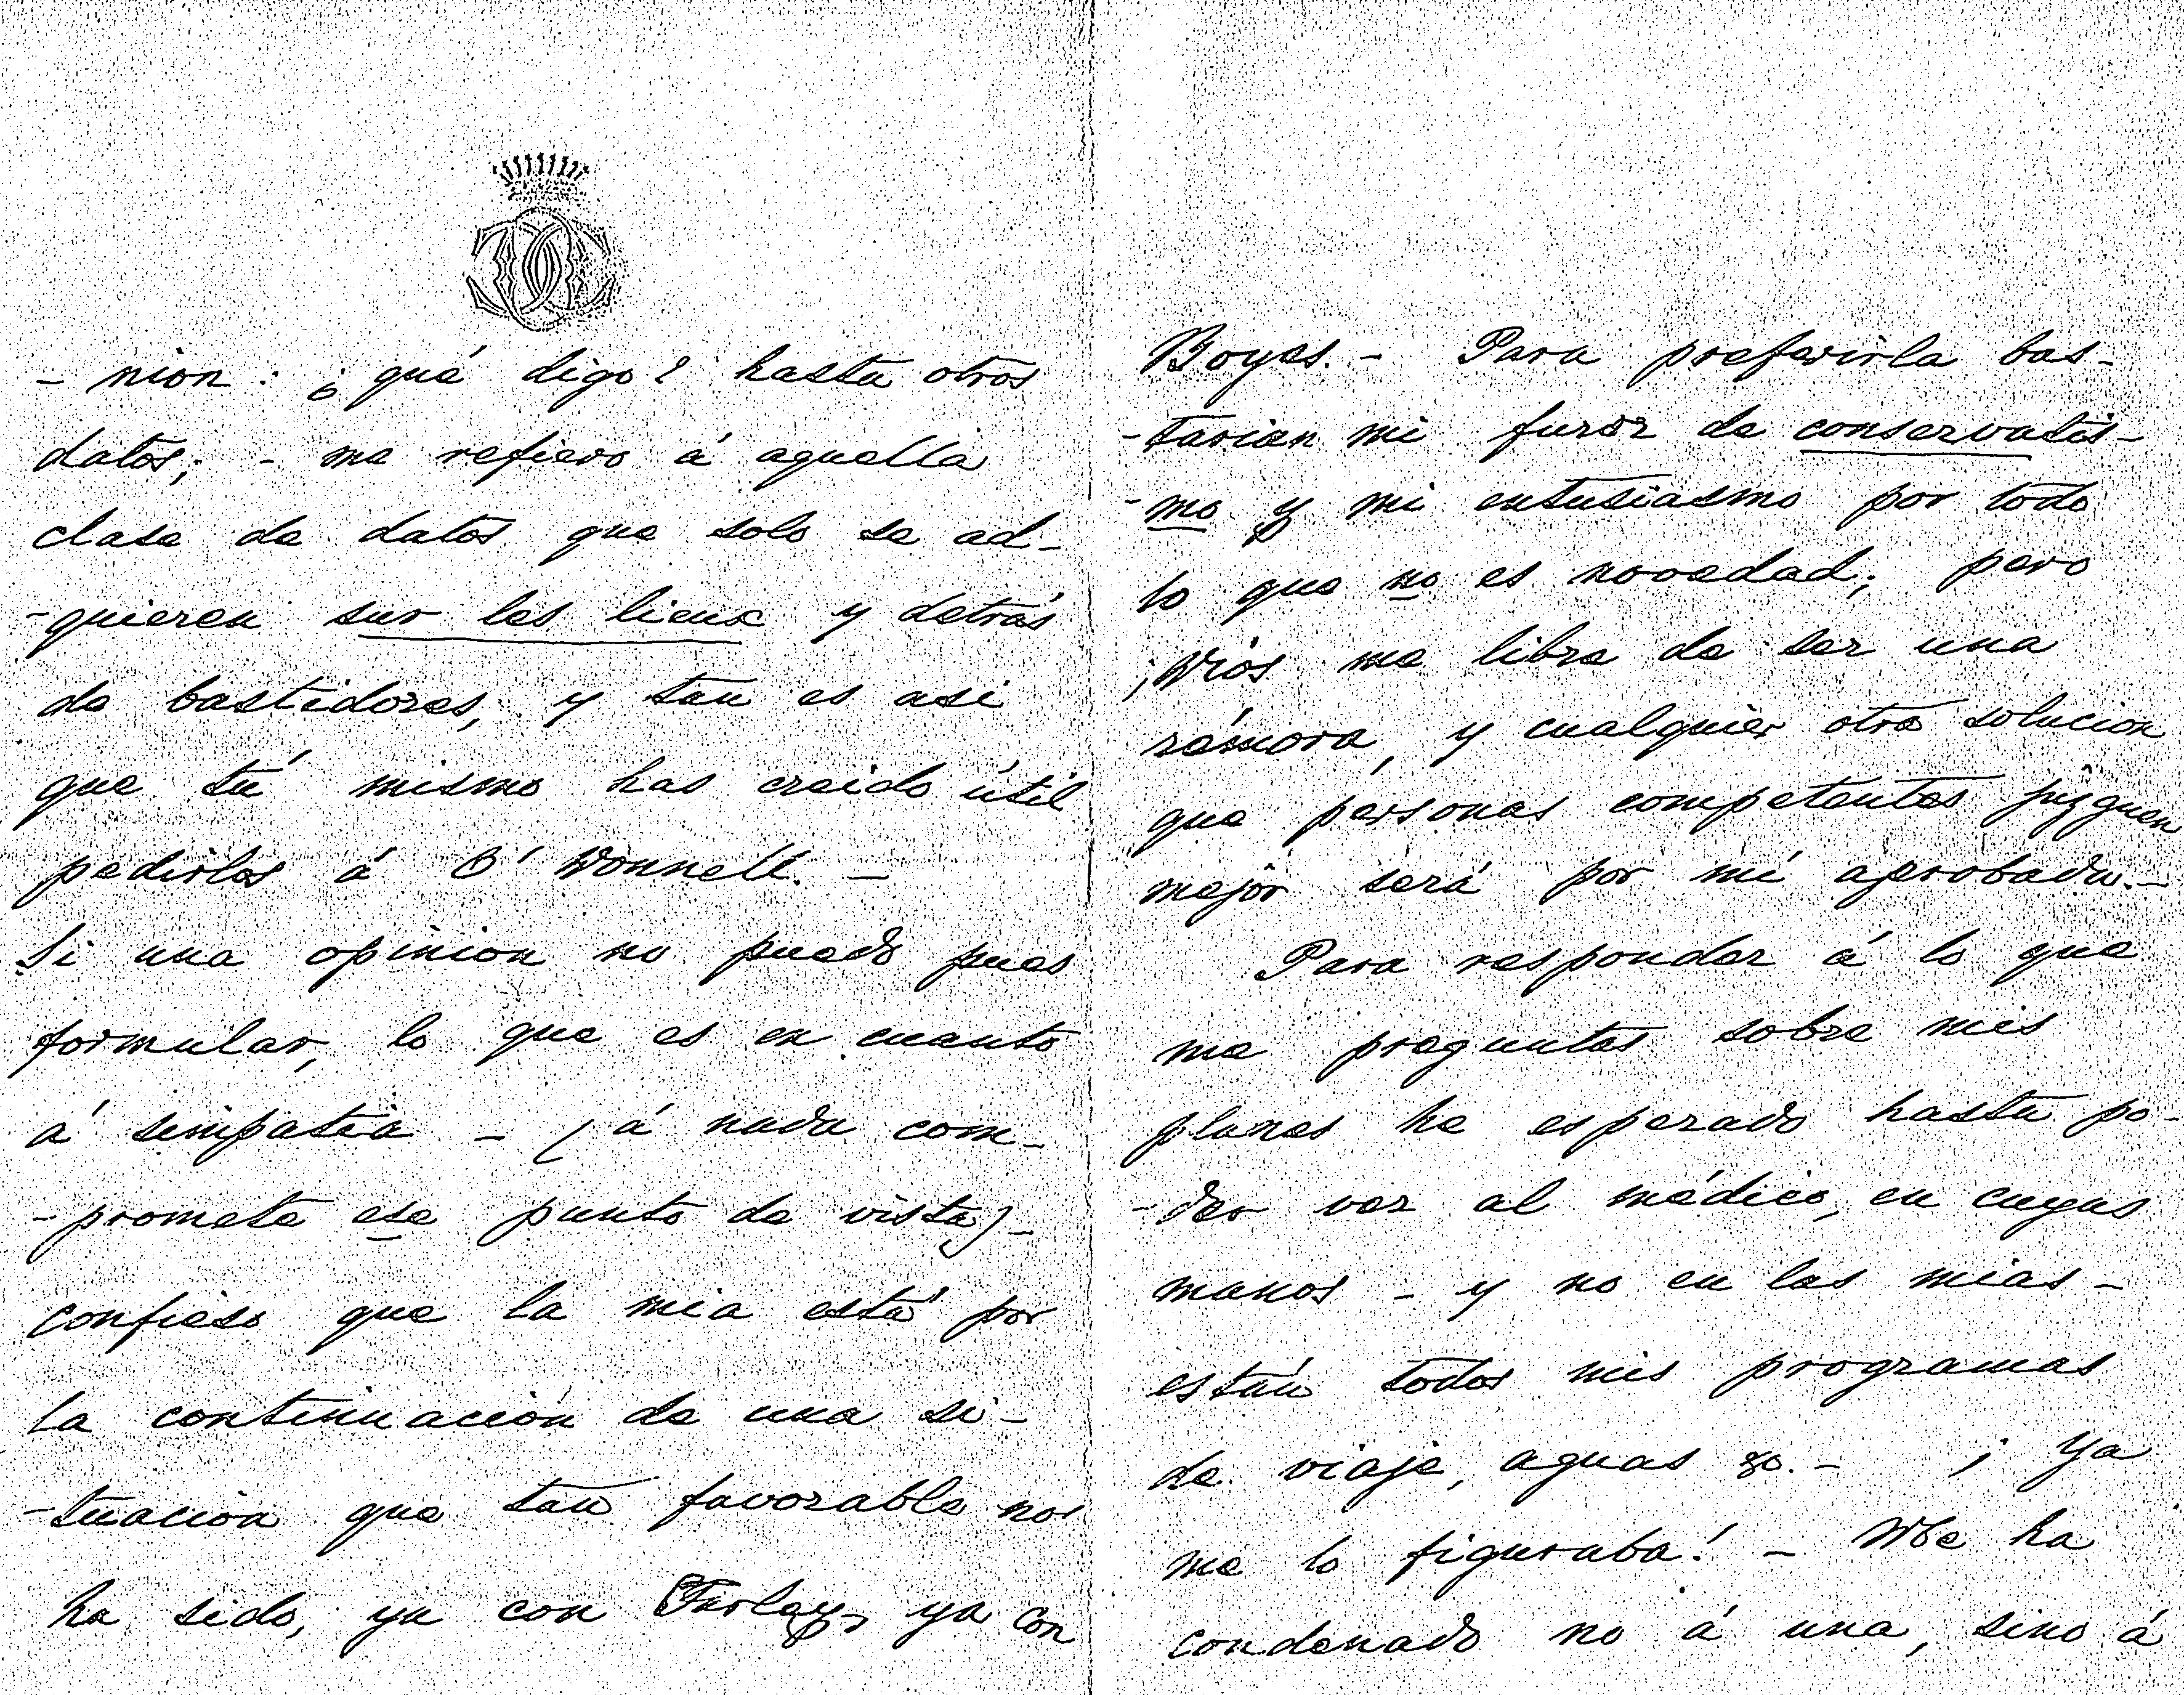 - nion: ¿qué digo? hasta otros
datos; - me refiero á aquella
clase de datos que solo se ad-
-quieren sur les lieux y detrás
de bastidores, y tan es asi
que tú mismo has creido útil
pedirlos á O'Donnell. -
Si una opinion no puedo pues
formular, lo que es en cuanto
á simpatia - (á nada com-
-promete ese punto de vista) -
confieso que la mia está por
la continuacion de una si-
-tuacion que tan favorable nos
ha sido, ya con Farlay, ya con
Noyes. - Para preferirla bas-
-tarian mi furor de conservatis-
-mo y mi entusiasmo por todo
lo que no es novedad; pero
¡Dios me libre de ser una
rémora, y cualquier otra solucion
que personas competentes juzguen
mejor será por mí aprobada. -
Para responder á lo que
me preguntas sobre mis
planes he esperado hasta po-
-der ver al médico, en cuyas
manos - y no en las mias -
están todos mis programas
de viaje, aguas &c. - ¡Ya
me lo figuraba! - Me ha
condenado no á una, sino á